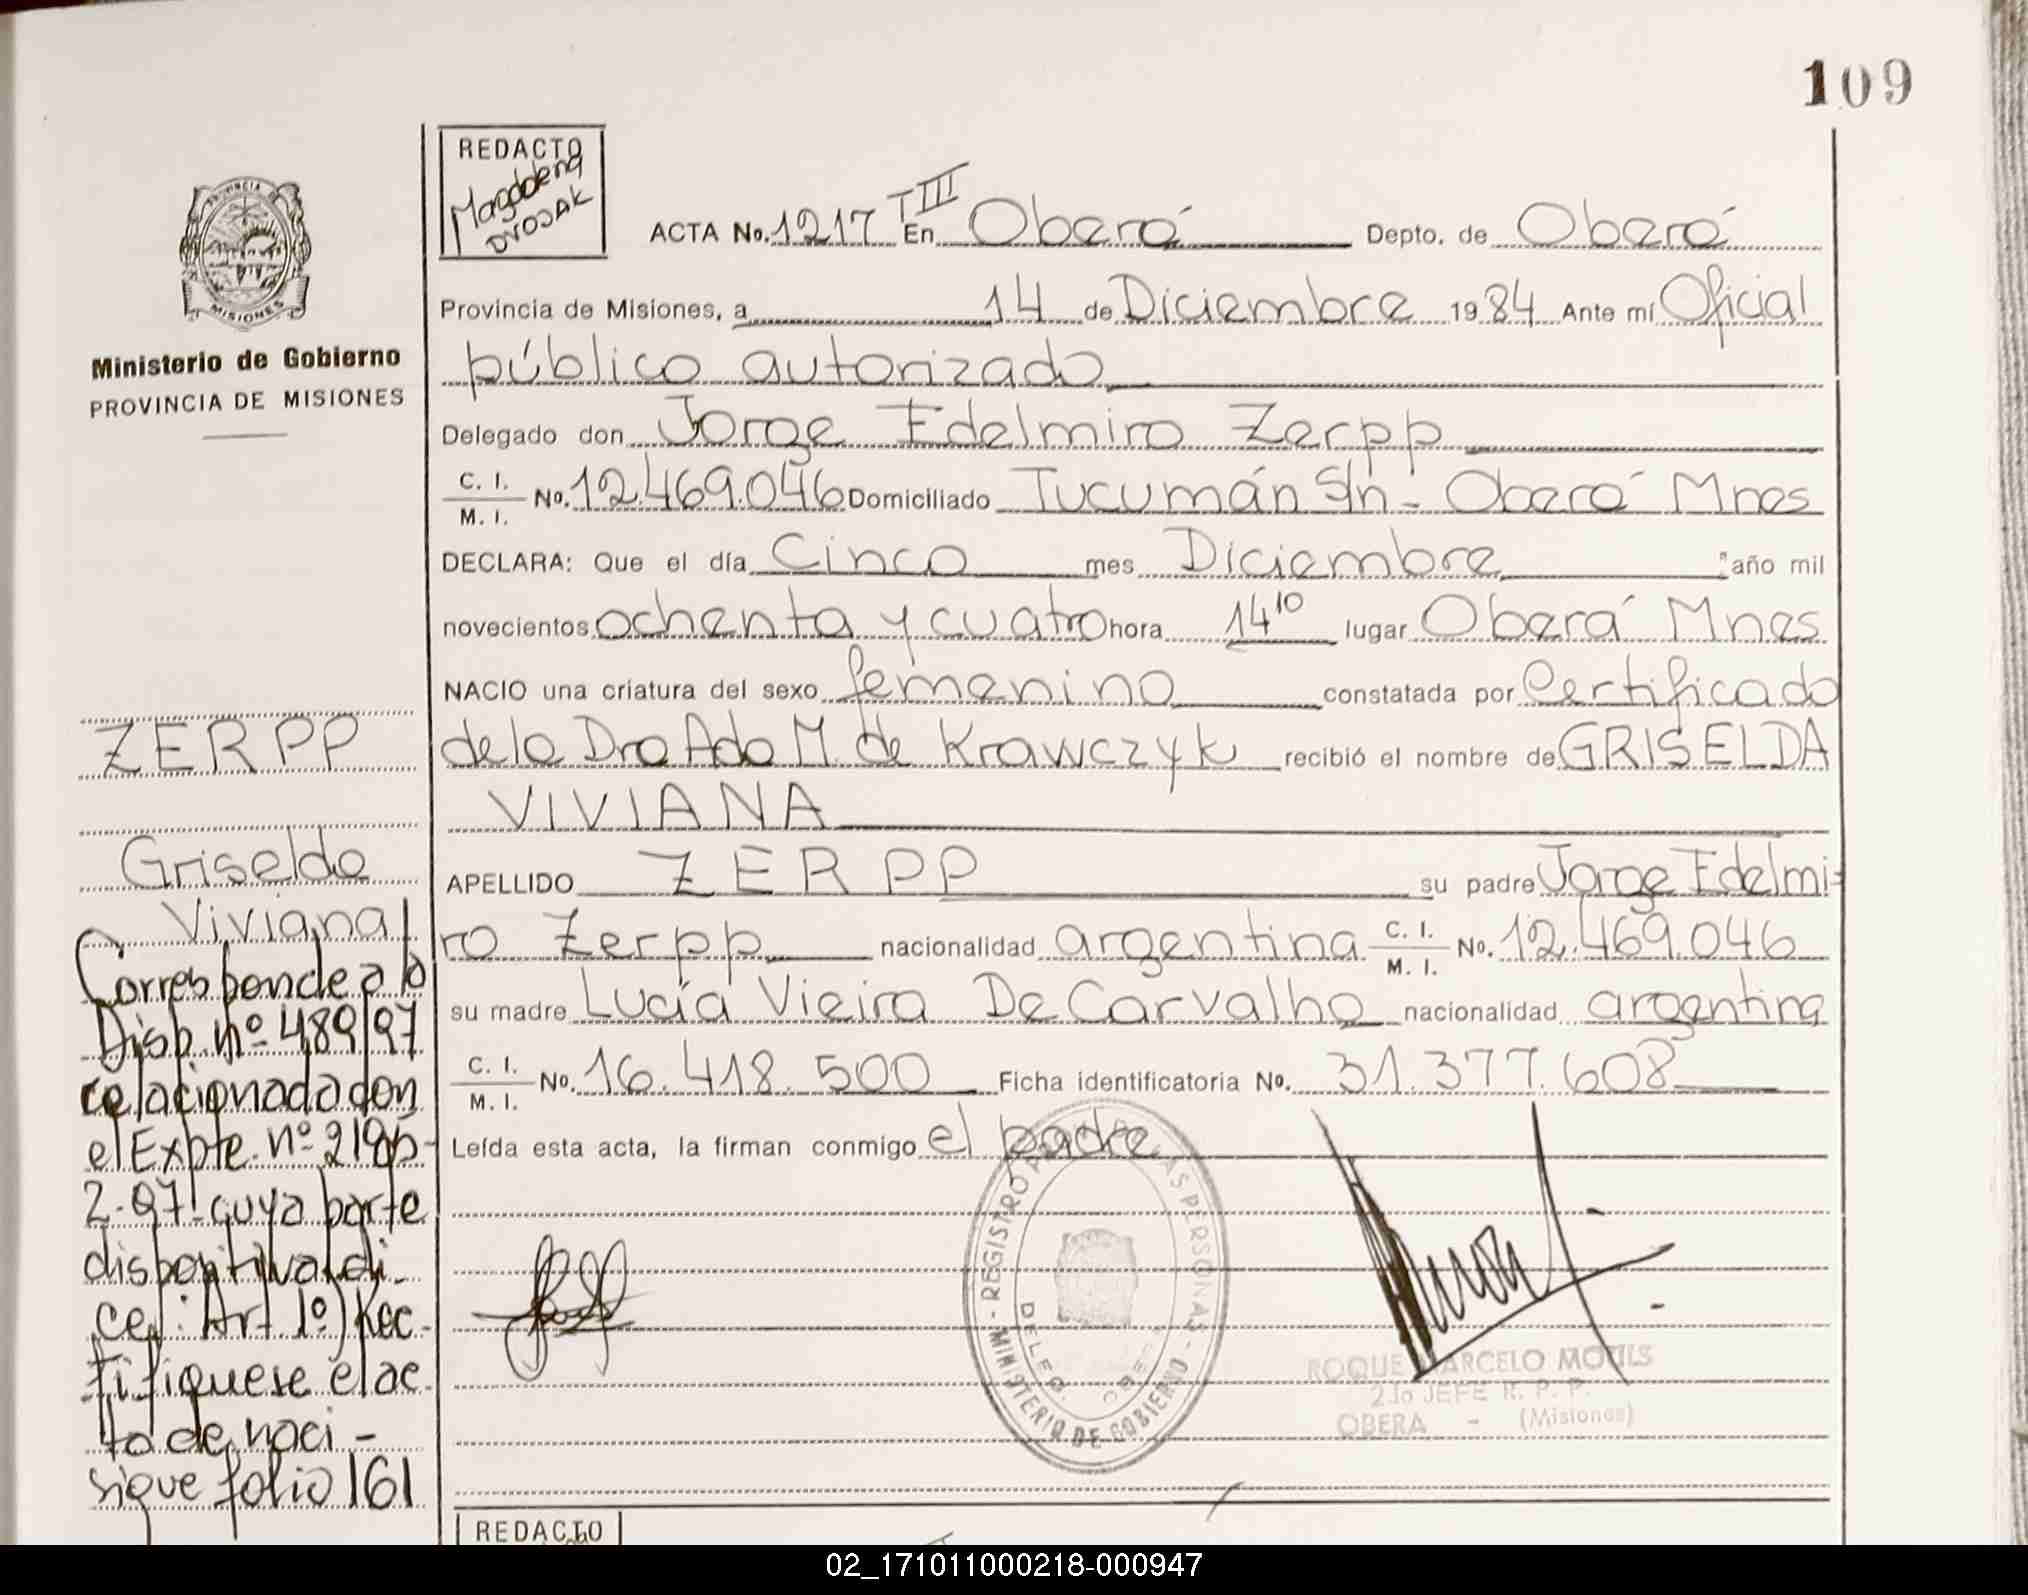 109
PROVINCIA DE
MISIONES
Ministerio de Gobierno
PROVINCIA DE MISIONES
REDACTO
Magdalena
DVOJAK
ACTA No. 1217 TIII En Oberá Depto. de Oberá
Provincia de Misiones, a 14 de Diciembre 1984 Ante mí Oficial
público autorizado
Delegado don Jorge Edelmiro Zerpp
C. I. / M. I. No. 12.469.046 Domiciliado Tucumán S/n - Oberá Mnes
DECLARA: Que el día Cinco mes Diciembre año mil
novecientos ochenta y cuatro hora 14 10 lugar Oberá Mnes
NACIO una criatura del sexo femenino constatada por Certificado
de la Dra Ada M. de Krawczyk recibió el nombre de GRISELDA
VIVIANA
APELLIDO ZERPP su padre Jorge Edelmi-
ro Zerpp nacionalidad argentina C. I. / M. I. No. 12.469.046
su madre Lucía Vieira De Carvalho nacionalidad argentina
C. I. / M. I. No. 16.418.500 Ficha identificatoria No. 31.377.608
Leída esta acta, la firman conmigo el padre
ZERPP
Griselda
Viviana
Corresponde a la
Disp. nº 489/97
relacionada con
el Expte. nº 2195-
2-97- cuya parte
dispositiva di-
ce: Art 1º) Rec-
tifiquese el ac
ta de naci -
sigue folio 161
- REGISTRO DE LAS PERSONAS -
MINISTERIO DE GOBIERNO
DELEG. OBERA
ROQUE MARCELO
2do JEFE R. P. P.
OBERA - (Misiones)
REDACTO
02_171011000218-000947